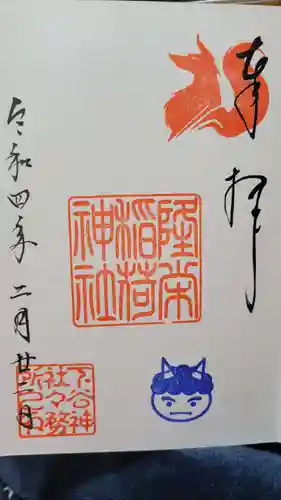 奉拝
隆栄
稲荷
神社
令和四年二月廿二日
下谷神
社々務
所之印